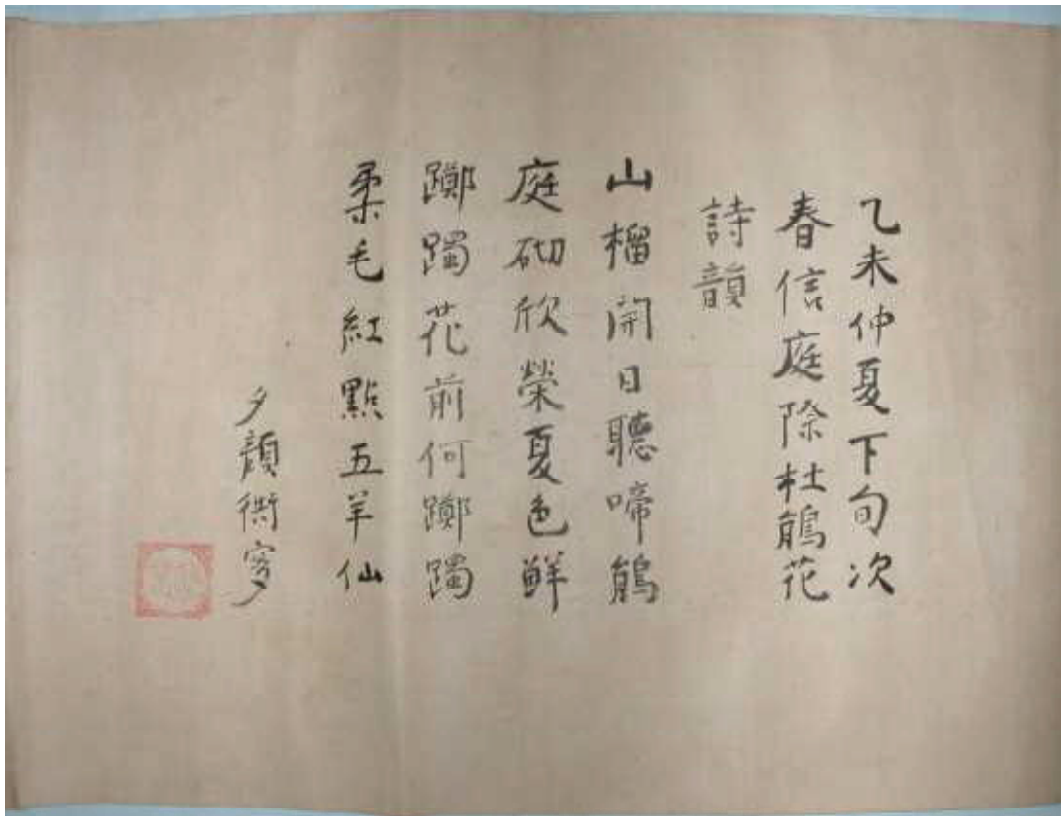 乙未仲夏下旬次
春信庭除杜鵑花
詩韻
山榴開日聽啼鵑
庭砌欣榮夏色鮮
躑躅花前何躑躅
柔毛紅點五羊仙
夕顏衖